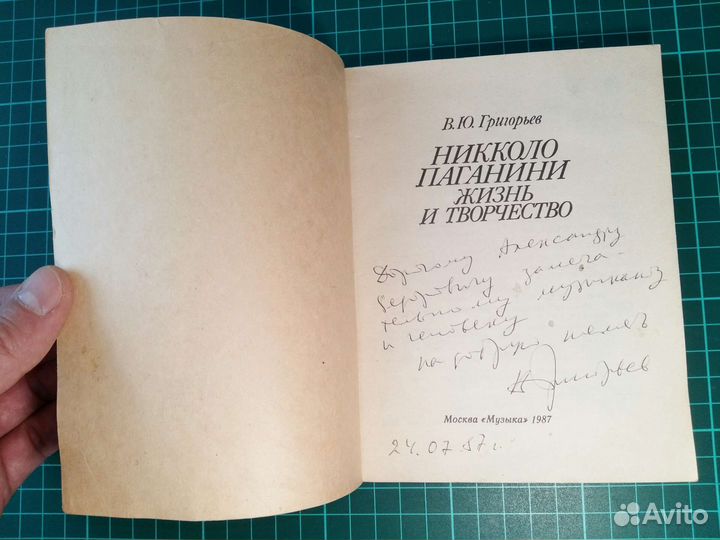 В.Ю. Григорьев
НИККОЛО
ПАГАНИНИ
ЖИЗНЬ
И ТВОРЧЕСТВО
Дорогому Александру
замеча-
тельному музыканту
и человеку
на добрую память
Григорьев
Москва «Музыка» 1987
24.07.87 г.
Avito